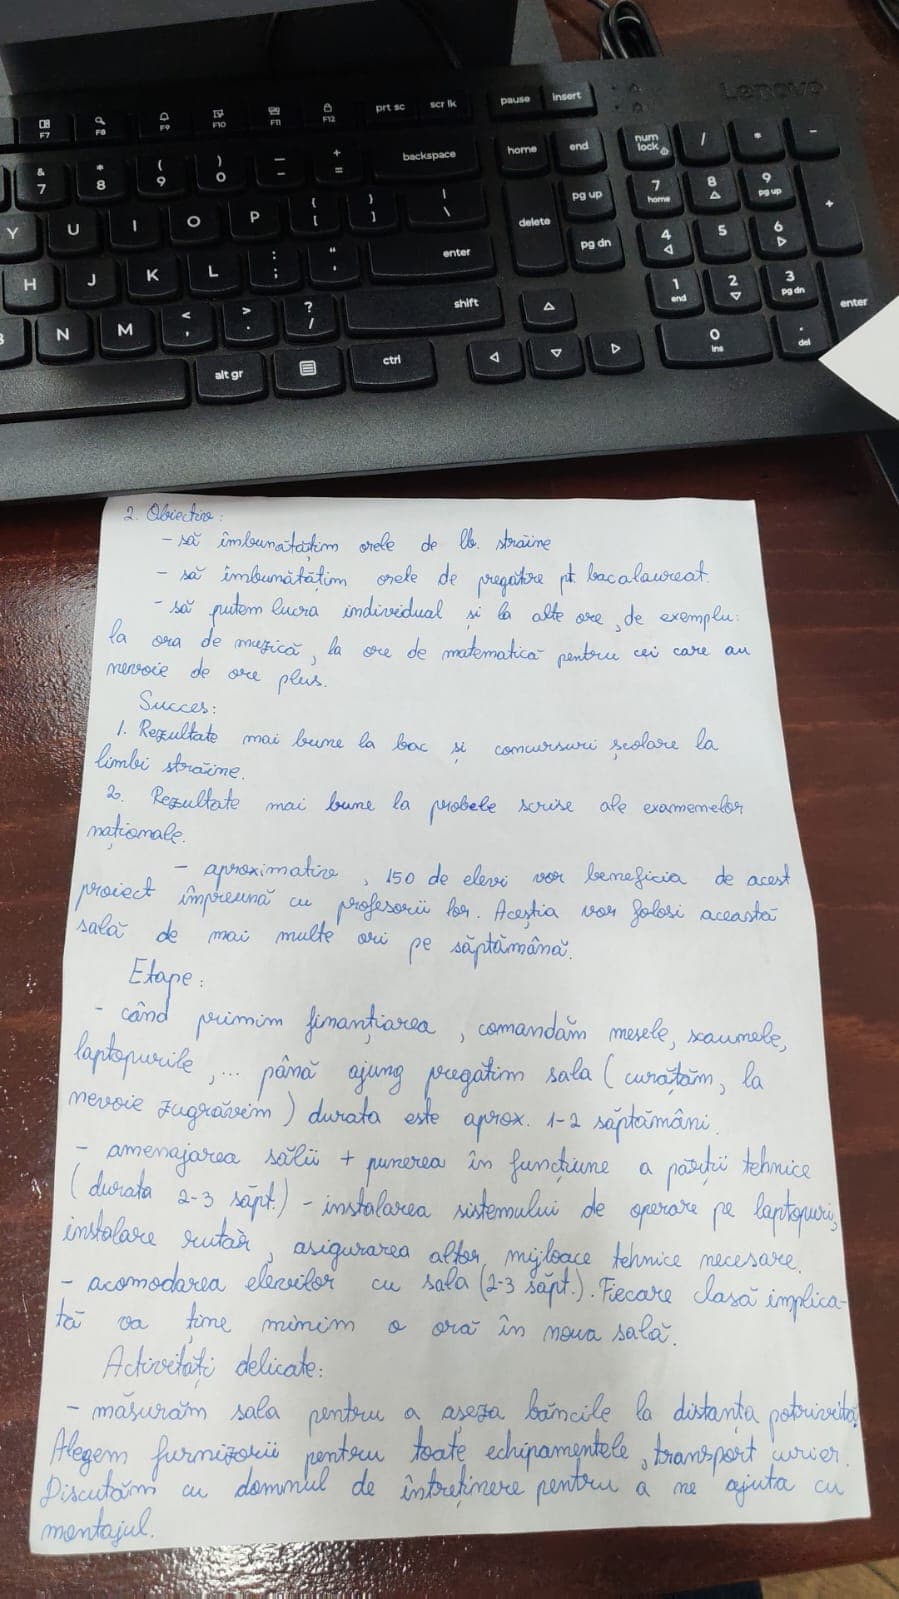 Lenovo
F7 F8 F9 F10 F11 F12 prt sc scr lk pause insert
& 7 * 8 ( 9 ) 0 _ - + = backspace home end num lock / * -
Y U I O P { [ } ] | \ delete pg up 7 home 8 9 pg up +
H J K L : ; " ' enter pg dn 4 5 6
N M < , > . ? / shift 1 end 2 3 pg dn enter
alt gr ctrl 0 ins . del
2. Obiective:
- să îmbunătățim orele de lb. străine
- să îmbunătățim orele de pregătire pt. bacalaureat.
- să putem lucra individual și la alte ore, de exemplu:
la ora de muzică, la ore de matematică pentru cei care au
nevoie de ore plus.
Succes:
1. Rezultate mai bune la bac și concursuri școlare la
limbi străine.
2. Rezultate mai bune la probele scrise ale examenelor
naționale.
- aproximativ, 150 de elevi vor beneficia de acest
proiect împreună cu profesorii lor. Aceștia vor folosi această
sală de mai multe ori pe săptămână.
Etape:
- când primim finanțiarea, comandăm mesele, scaunele,
laptopurile,... până ajung pregătim sala (curățăm, la
nevoie zugrăvim) durata este aprox. 1-2 săptămâni.
- amenajarea sălii + punerea în funcțiune a părții tehnice
(durata 2-3 săpt.) - instalarea sistemului de operare pe laptopuri,
instalare rutăr, asigurarea altor mijloace tehnice necesare.
- acomodarea elevilor cu sala (2-3 săpt.). Fiecare clasă implica-
tă va ține minim o oră în noua sală.
Activități delicate:
- măsurăm sala pentru a așeza băncile la distanța potrivită.
Alegem furnizorii pentru toate echipamentele, transport curier.
Discutăm cu domnul de întreținere pentru a ne ajuta cu
montajul.